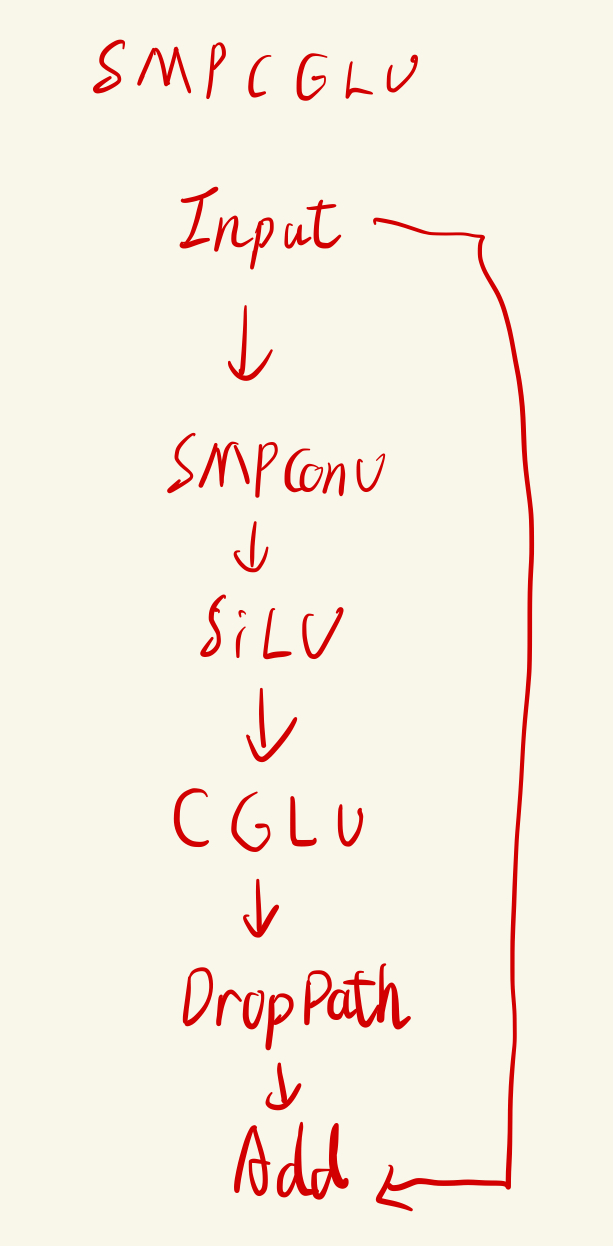 SMPCGLU
Input
SMPConv
SiLU
CGLU
DropPath
Add